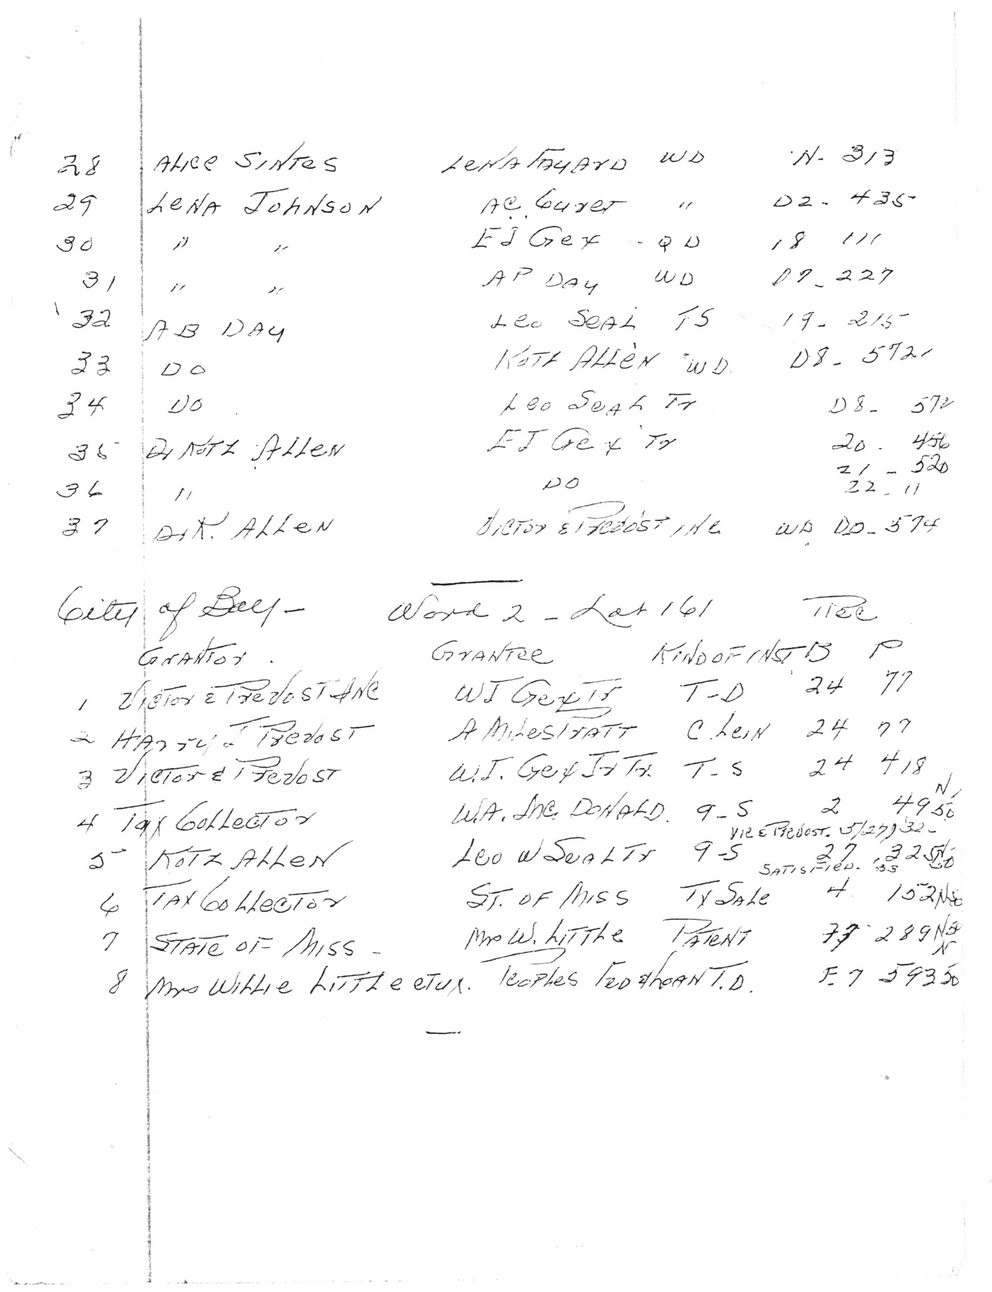 28 ALICE SINTES LENA FAYARD WD N- 313
29 LENA JOHNSON AC. Curet " D2- 435
30 " " EJ Gex - QD 18 111
31 " " AP DAY WD D7- 227
32 AB DAY Leo SEAL TS 19- 215
33 DO KOTZ ALLEN WD. D8- 572
34 DO Leo SEAL Tr D8- 572
35 Dr KOTZ ALLEN EJ Gex Tr 20. 456
21 - 520
36 " DO 22 - 11
37 Dr K. ALLEN VICTOR & PREVOST INC WD DD- 574
City of Bay - Ward 2 - Lot 161 Rec
GRANTOR. GRANTEE KIND OF INST B P
1 VICTOR & PREVOST INC WJ Gex Tr T-D 24 77
2 HARRY I PREVOST A MILES PRATT C. Lein 24 77
3 VICTOR & PREVOST W.J. Gex Jr Tr. T-S 24 418
4 TAX COLLECTOR W.A. Mc DONALD. 9-S 2 49 N/50
VIC & PREVOST. 5/27/32-
5 KOTZ ALLEN Leo W Seal Tr 9-S 27 325 N-50
SATISFIED. 33
6 TAX COLLECTOR ST. OF MISS TX SALE 4 152 N50
7 STATE OF MISS - Mrs W. LITTLE PATENT 77 289 N50
8 Mrs WILLIE LITTLE ETUX. PEOPLES FED & LOAN T.D. F-7 593 N 50